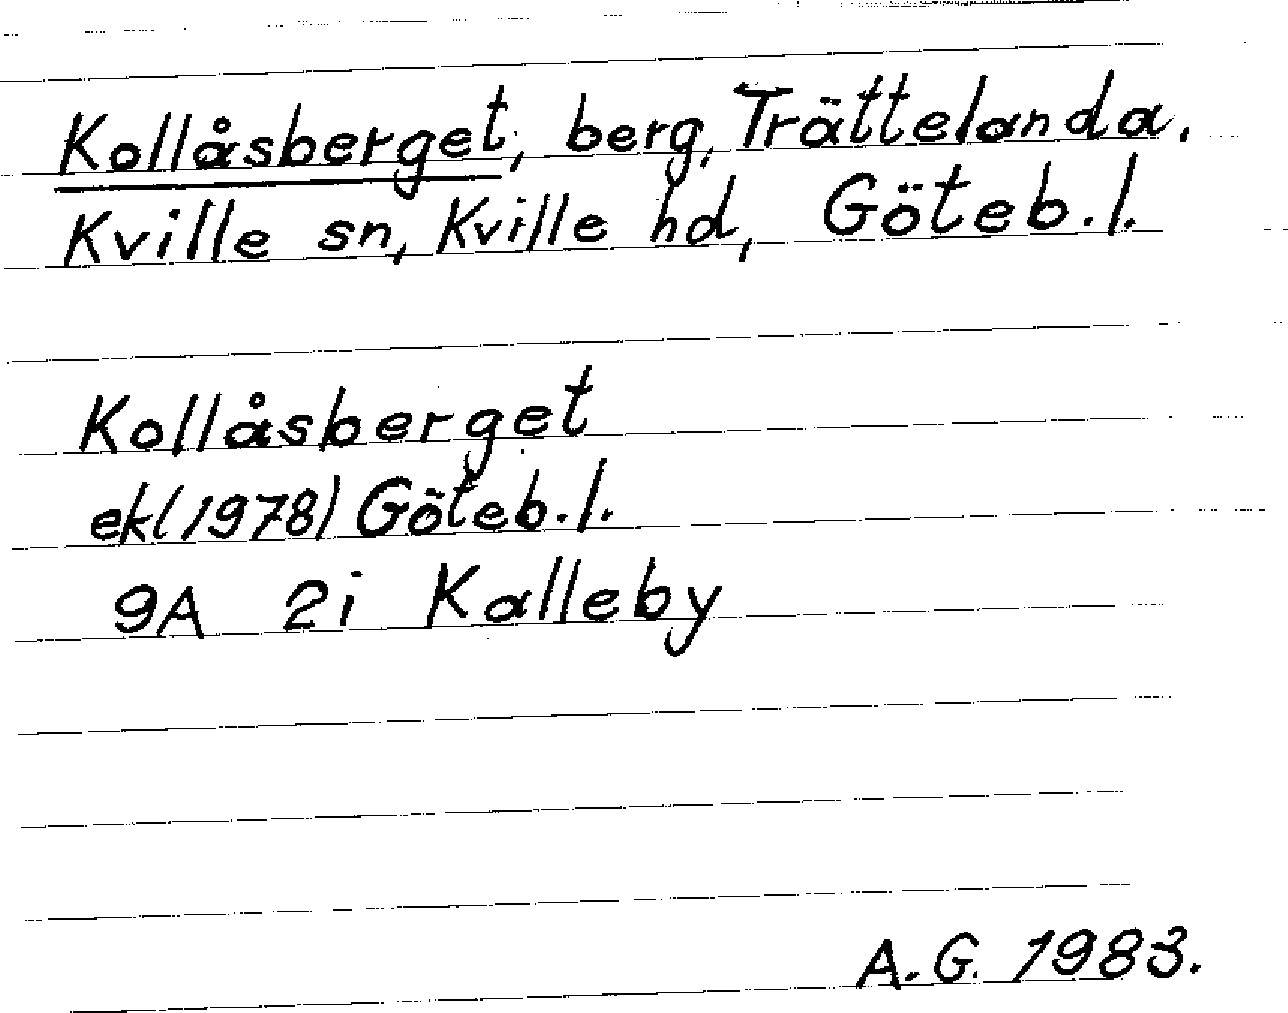 Kollåsberget, berg, Trättelanda,
Kville sn, Kville hd, Göteb.l.
Kollåsberget
ekl(1978) Göteb.l.
9A 2i Kalleby
A.G. 1983.